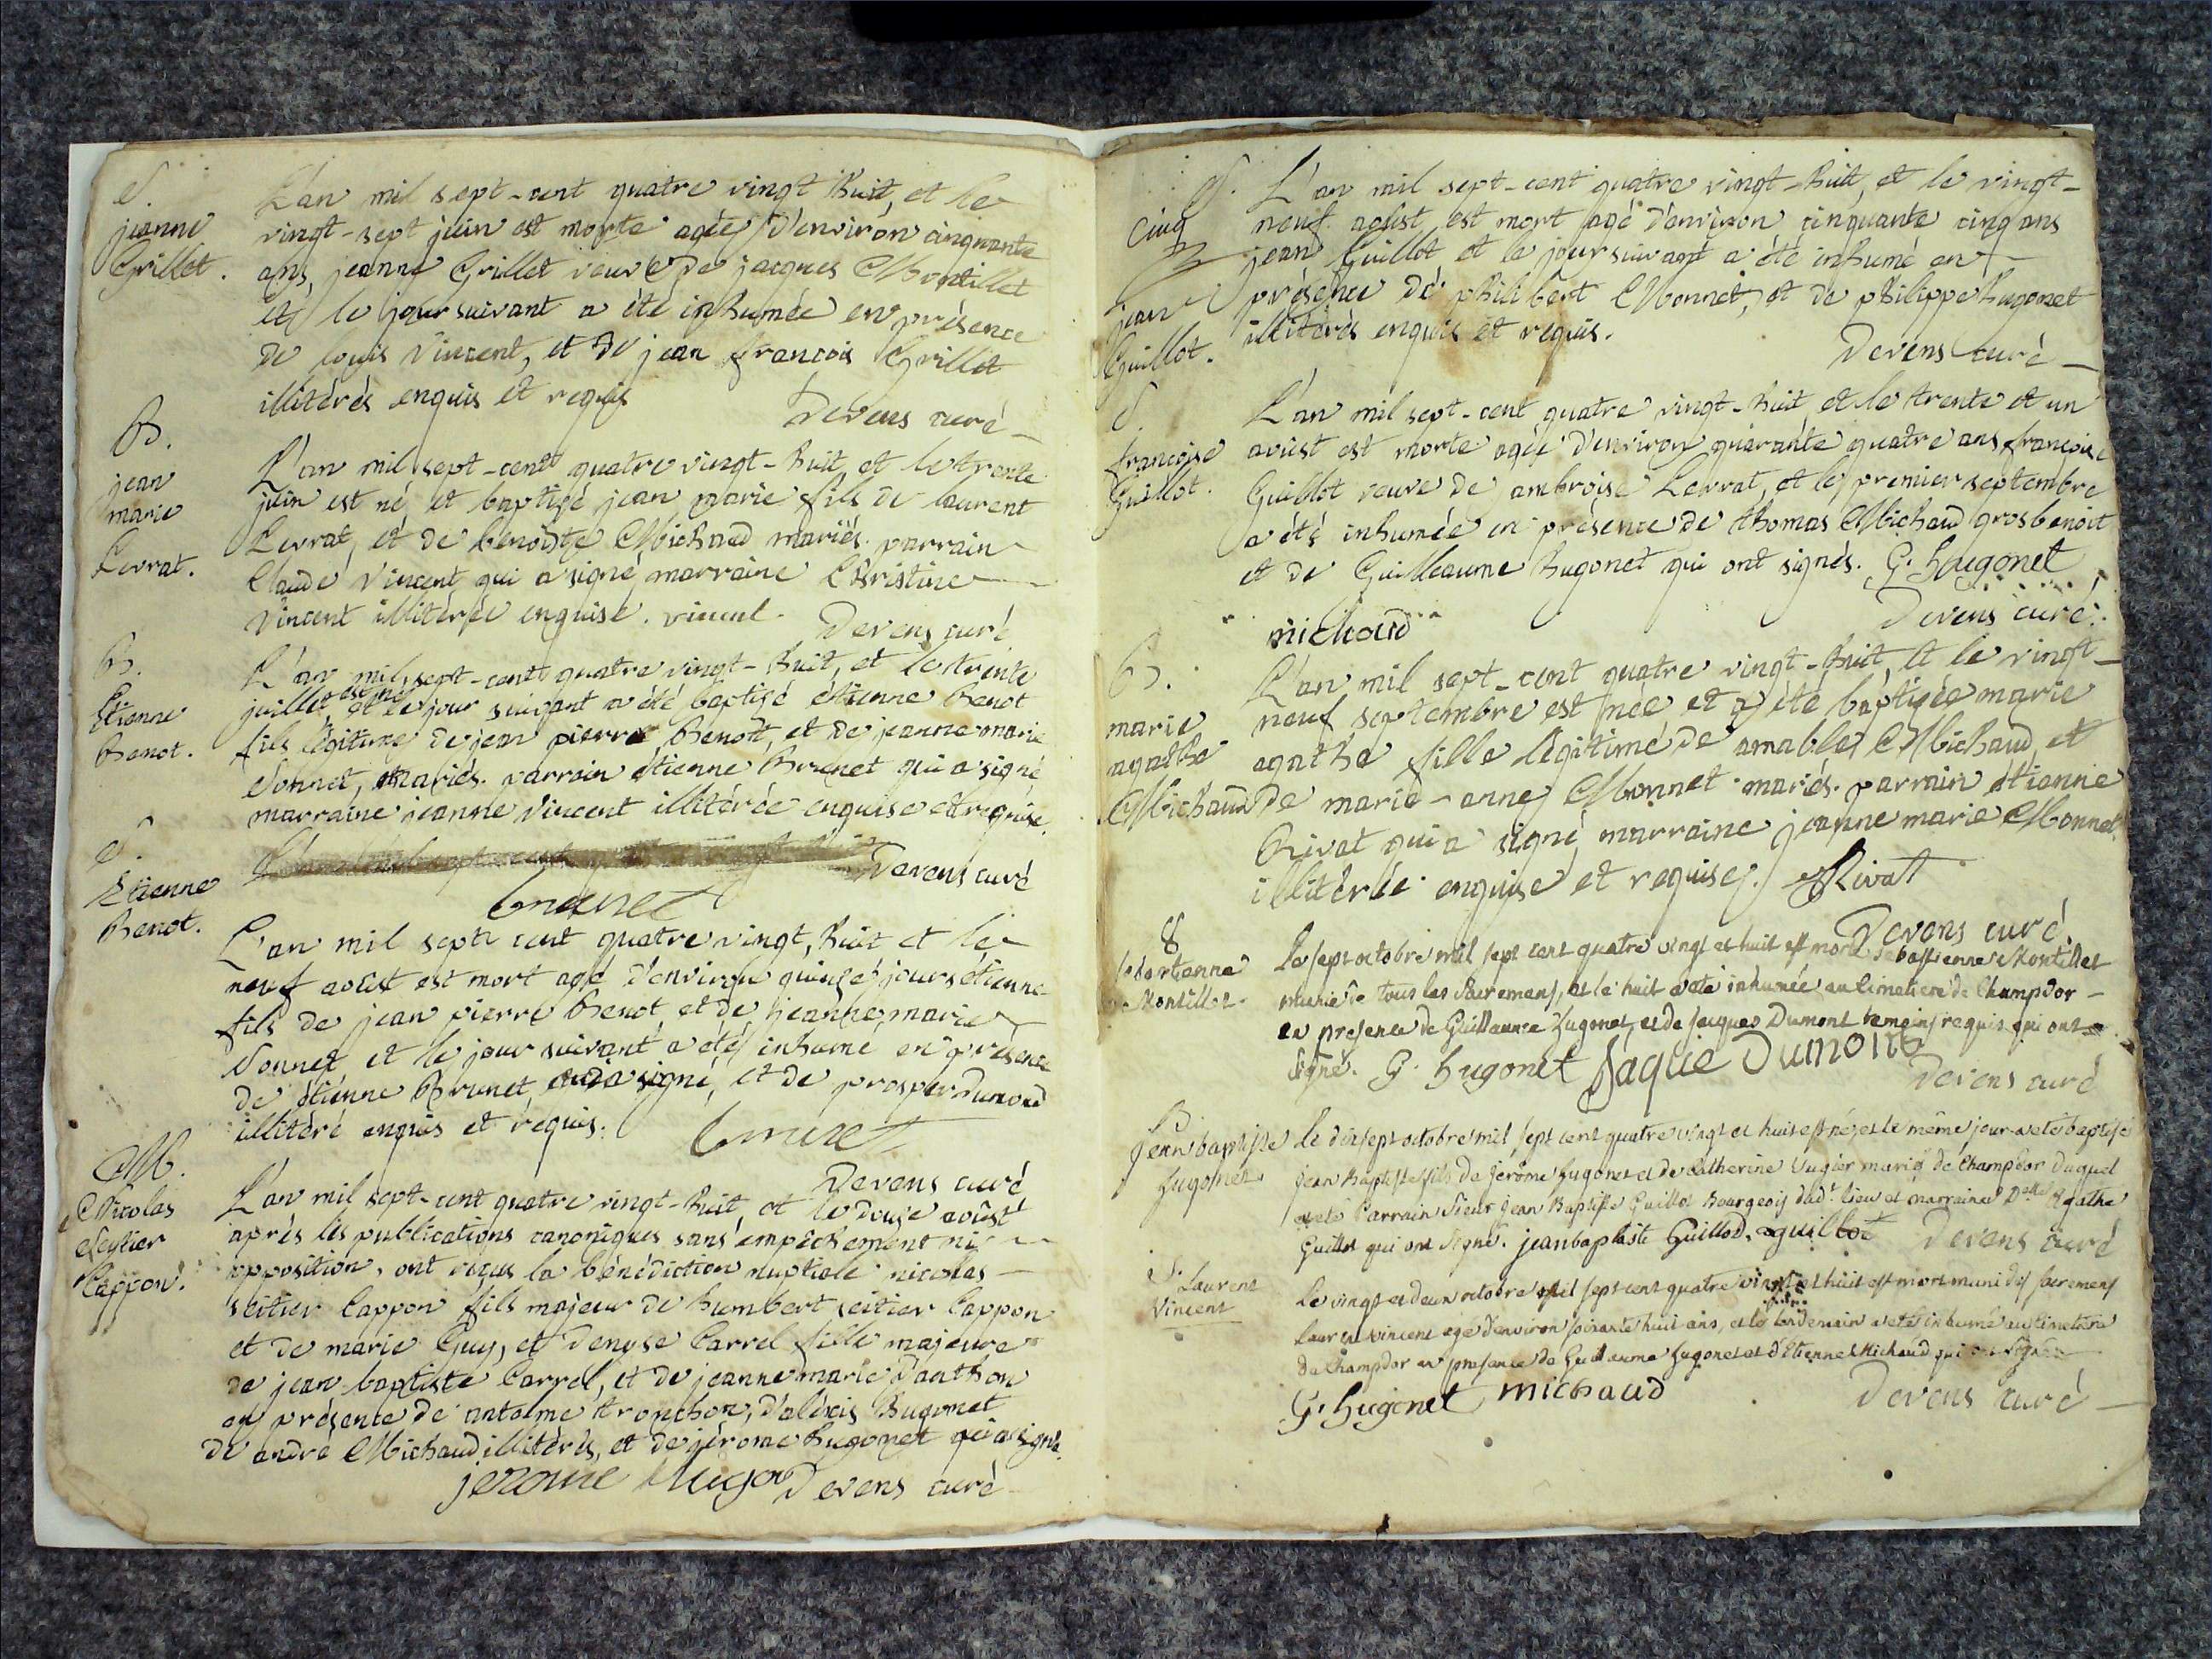 S.
jeanne
Grillet.
L'an mil sept-cent quatre vingt huit, et le
vingt-sept juin est morte agée d'environ cinquante
ans, jeanne Grillet veuve de jacques Montillet
et le jour suivant a été inhumée en présence
de louis Vincent, et de jean francois Grillet
illitérés enquis et requis
Devens curé
B.
jean
marie
Lerrat.
L'an mil sept-cent quatre vingt-huit, et le trente
juin est né et baptisé jean marie fils de laurent
Lerrat, et de benoiste Michaud mariés. parrain
Claude Vincent qui a signé, marraine Christine
Vincent illitérée enquise. vincent.
Devens curé
B.
Etienne
Benot.
L'an mil sept-cent quatre vingt-huit, et le trente
juillet est né et le jour suivant a été baptisé étienne Benot
fils légitime de jean pierre Benot, et de jeanne marie
Vonnet, mariés. parrain étienne Brunet qui a signé
marraine jeanne Vincent illitérée enquise et requise.
Devens curé
brunet
S.
Etienne
Benot.
L'an mil sept cent quatre vingt, huit et le
neuf aoust est mort agé d'environ quinze jours étienne
fils de jean pierre benot et de jeanne marie
Vonnet, et le jour suivant a été inhumé en présence
de étienne Brunet, qui a signé, et de prosper dumond
illitéré enquis et requis.
brunet
Devens curé
M.
Nicolas
Seytier
Cappon.
L'an mil sept-cent quatre vingt-huit, et le douze aoûst
après les publications canoniques sans empêchement ni
opposition, ont reçus la bénédiction nuptiale nicolas
seitier Cappon fils majeur de humbert seitier Cappon
et de marie Guy, et denyse Carrel fille majeure
de jean-baptiste Carrel, et de jeanne marie Danthon
en présence de antoine tronchon, d'aléxis hugonet
de andré Michaud illitérés, et de jérome hugonet qui a signé.
jerome hugon Devens curé
cinq
S.
jean
Guillot.
L'an mil sept-cent quatre vingt-huit, et le vingt-
neuf aoust, est mort agé d'environ cinquante cinq ans
jean Guillot et le jour suivant a été inhumé en
présence de philibert Monnet, et de philippe hugonet
illitérés enquis et requis.
Devens curé
S.
francoise
Guillot.
L'an mil sept-cent quatre vingt-huit et le trente et un
aoust est morte agée d'environ quarante quatre ans françoise
Guillot veuve de ambroise Lerrat, et le premier septembre
a été inhumée en présence de thomas Michaud grosbenoit
et de Guilleaume hugonet qui ont signés. G. hougonet
michaud
Devens curé
B.
marie
agathe
Michaud
L'an mil sept-cent quatre vingt-huit, et le vingt-
neuf septembre est née et a été baptisée marie
agathe fille légitime de amable Michaud et
de marie-anne Monnet mariés. parrain étienne
Rivat qui a signé marraine jeanne marie Monnet,
illitérée enquise et requise. Rivat
Devens curé
8
Montillet.
Le sept octobre mil sept cent quatre vingt et huit est morte sebastienne Montillet
munie de tous les sacremens, et le huit a été inhumée au cimetiere de Champdor
en presence de Guillaume hugonet, et de jacques Dumont temoins requis qui ont
signé. G. hugonet jaque Dumont
Devens curé
B
Jean baptiste
hugonet
Le dix sept octobre mil sept cent quatre vingt et huit est né, et le même jour a été baptisé
Jean Baptiste fils de Jerôme hugonet et de Catherine Vugier mariés de Champdor duquel
a été Parrain sieur Jean Baptiste Guillot Bourgeois dud.t lieu et marraine D.elle Agathe
Guillot qui ont signé. jean baptiste Guillod, aguillot Devens curé
S. Laurent
Vincent
Le vingt et deux octobre mil sept cent quatre vingt et huit est mort muni des sacremens
laurent vincent agé d'environ soixante huit ans, et le lendemain a été inhumé au cimetiere
de Champdor en presence de Guillaume hugonet et d'Etienne Michaud qui ont signé.
G. hugonet michaud Devens curé